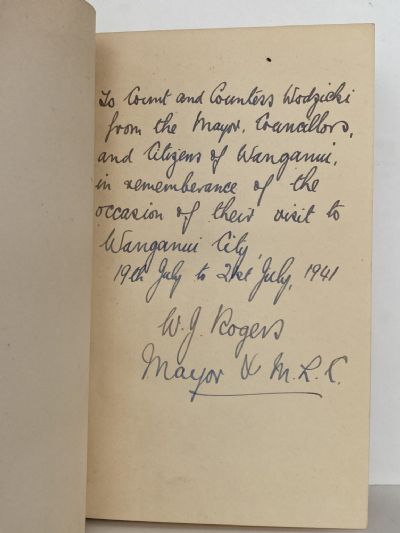 To Count and Countess Wodzicki
from the Mayor, Councillors,
and Citizens of Wanganui,
in rememberance of the
occasion of their visit to
Wanganui City,
19th July to 21st July, 1941
W. J. Rogers
Mayor & M.L.C.